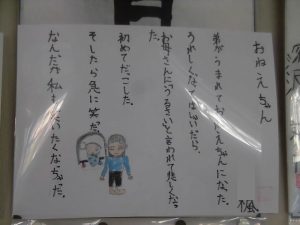 おねえちゃん
楓
弟がうまれておねえちゃんになった。
うれしくなってはしゃいだら、
お母さんに「うるさい」と言われて悲しくなった。
初めてだっこした。
そしたら急に笑った。
なんだか私も
たくなっちゃった。